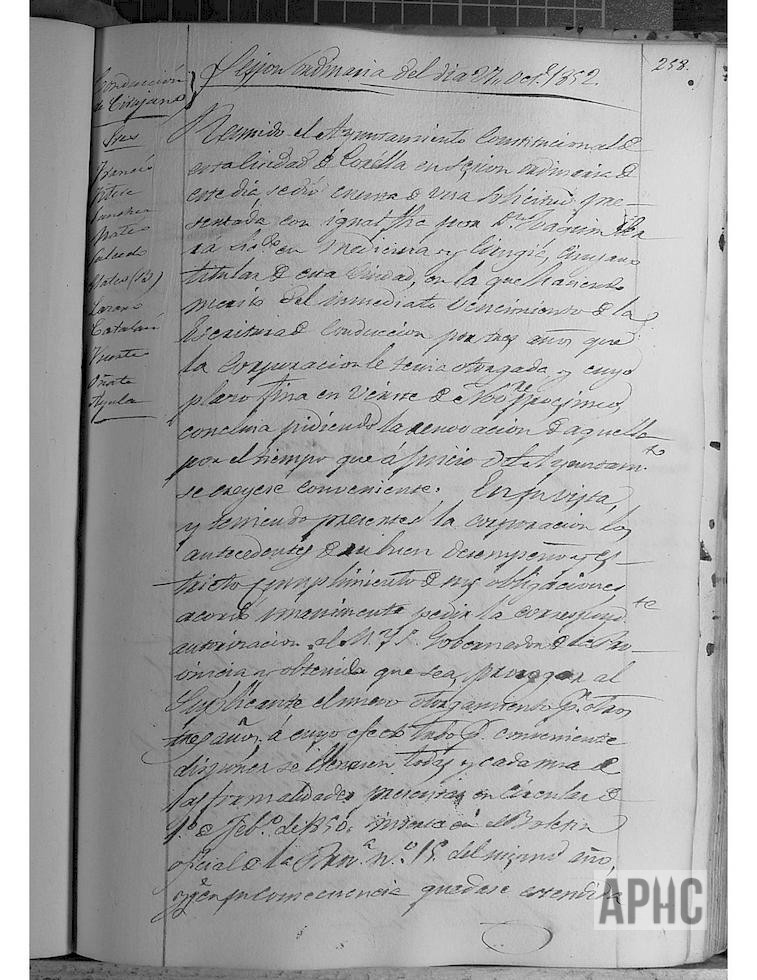 258.
Session Ordinaria del dia 27, Oct.e 1852.
Conducción
de Cirujano
Sres
Mateo
Salcedo
Mateo (D)
Catalan
Vicente
Oñate
Ayala
Reunido el Ayuntamiento Constitucional de
esta Ciudad de Corella en sesion ordinaria de
este dia se dió cuenta de una solicitud pre-
sentada con igual fhe por Dn. Joaquin
en Medicina y Cirugia, Cirujano
titular de esta Ciudad, en la que haciendo
merito del inmediato vencimiento de la
Escritura de Conduccion por tres años que
la Corporacion le tenia otorgada y cuyo
plazo fina en veinte de Nobre. procsimo,
concluia pidiendo la renovacion de aquella
por el tiempo que á juicio del Ayuntam.to
se creyere conveniente. En su vista,
y teniendo presentes la corporacion los
antecedentes de su buen desempeño y es-
tricto cumplimiento de sus obligaciones
acordó unanimemente pedir la correspond.te
autorizacion al M. Y. S. Gobernador de la Pro-
vincia y obtenida que sea, prorogar al
Suplicante el nuevo otorgamiento pr. otros
tres años á cuyo efecto todo S. conveniente
disponer se llenen todas y cada una de
las formalidades prescritas en circular de
1.o de Feb.o de 1850, inserta en el Boletin
oficial de la Prov.a n.o 15 del mismo año,
y qe. en su consecuencia quedase estendida
APHC